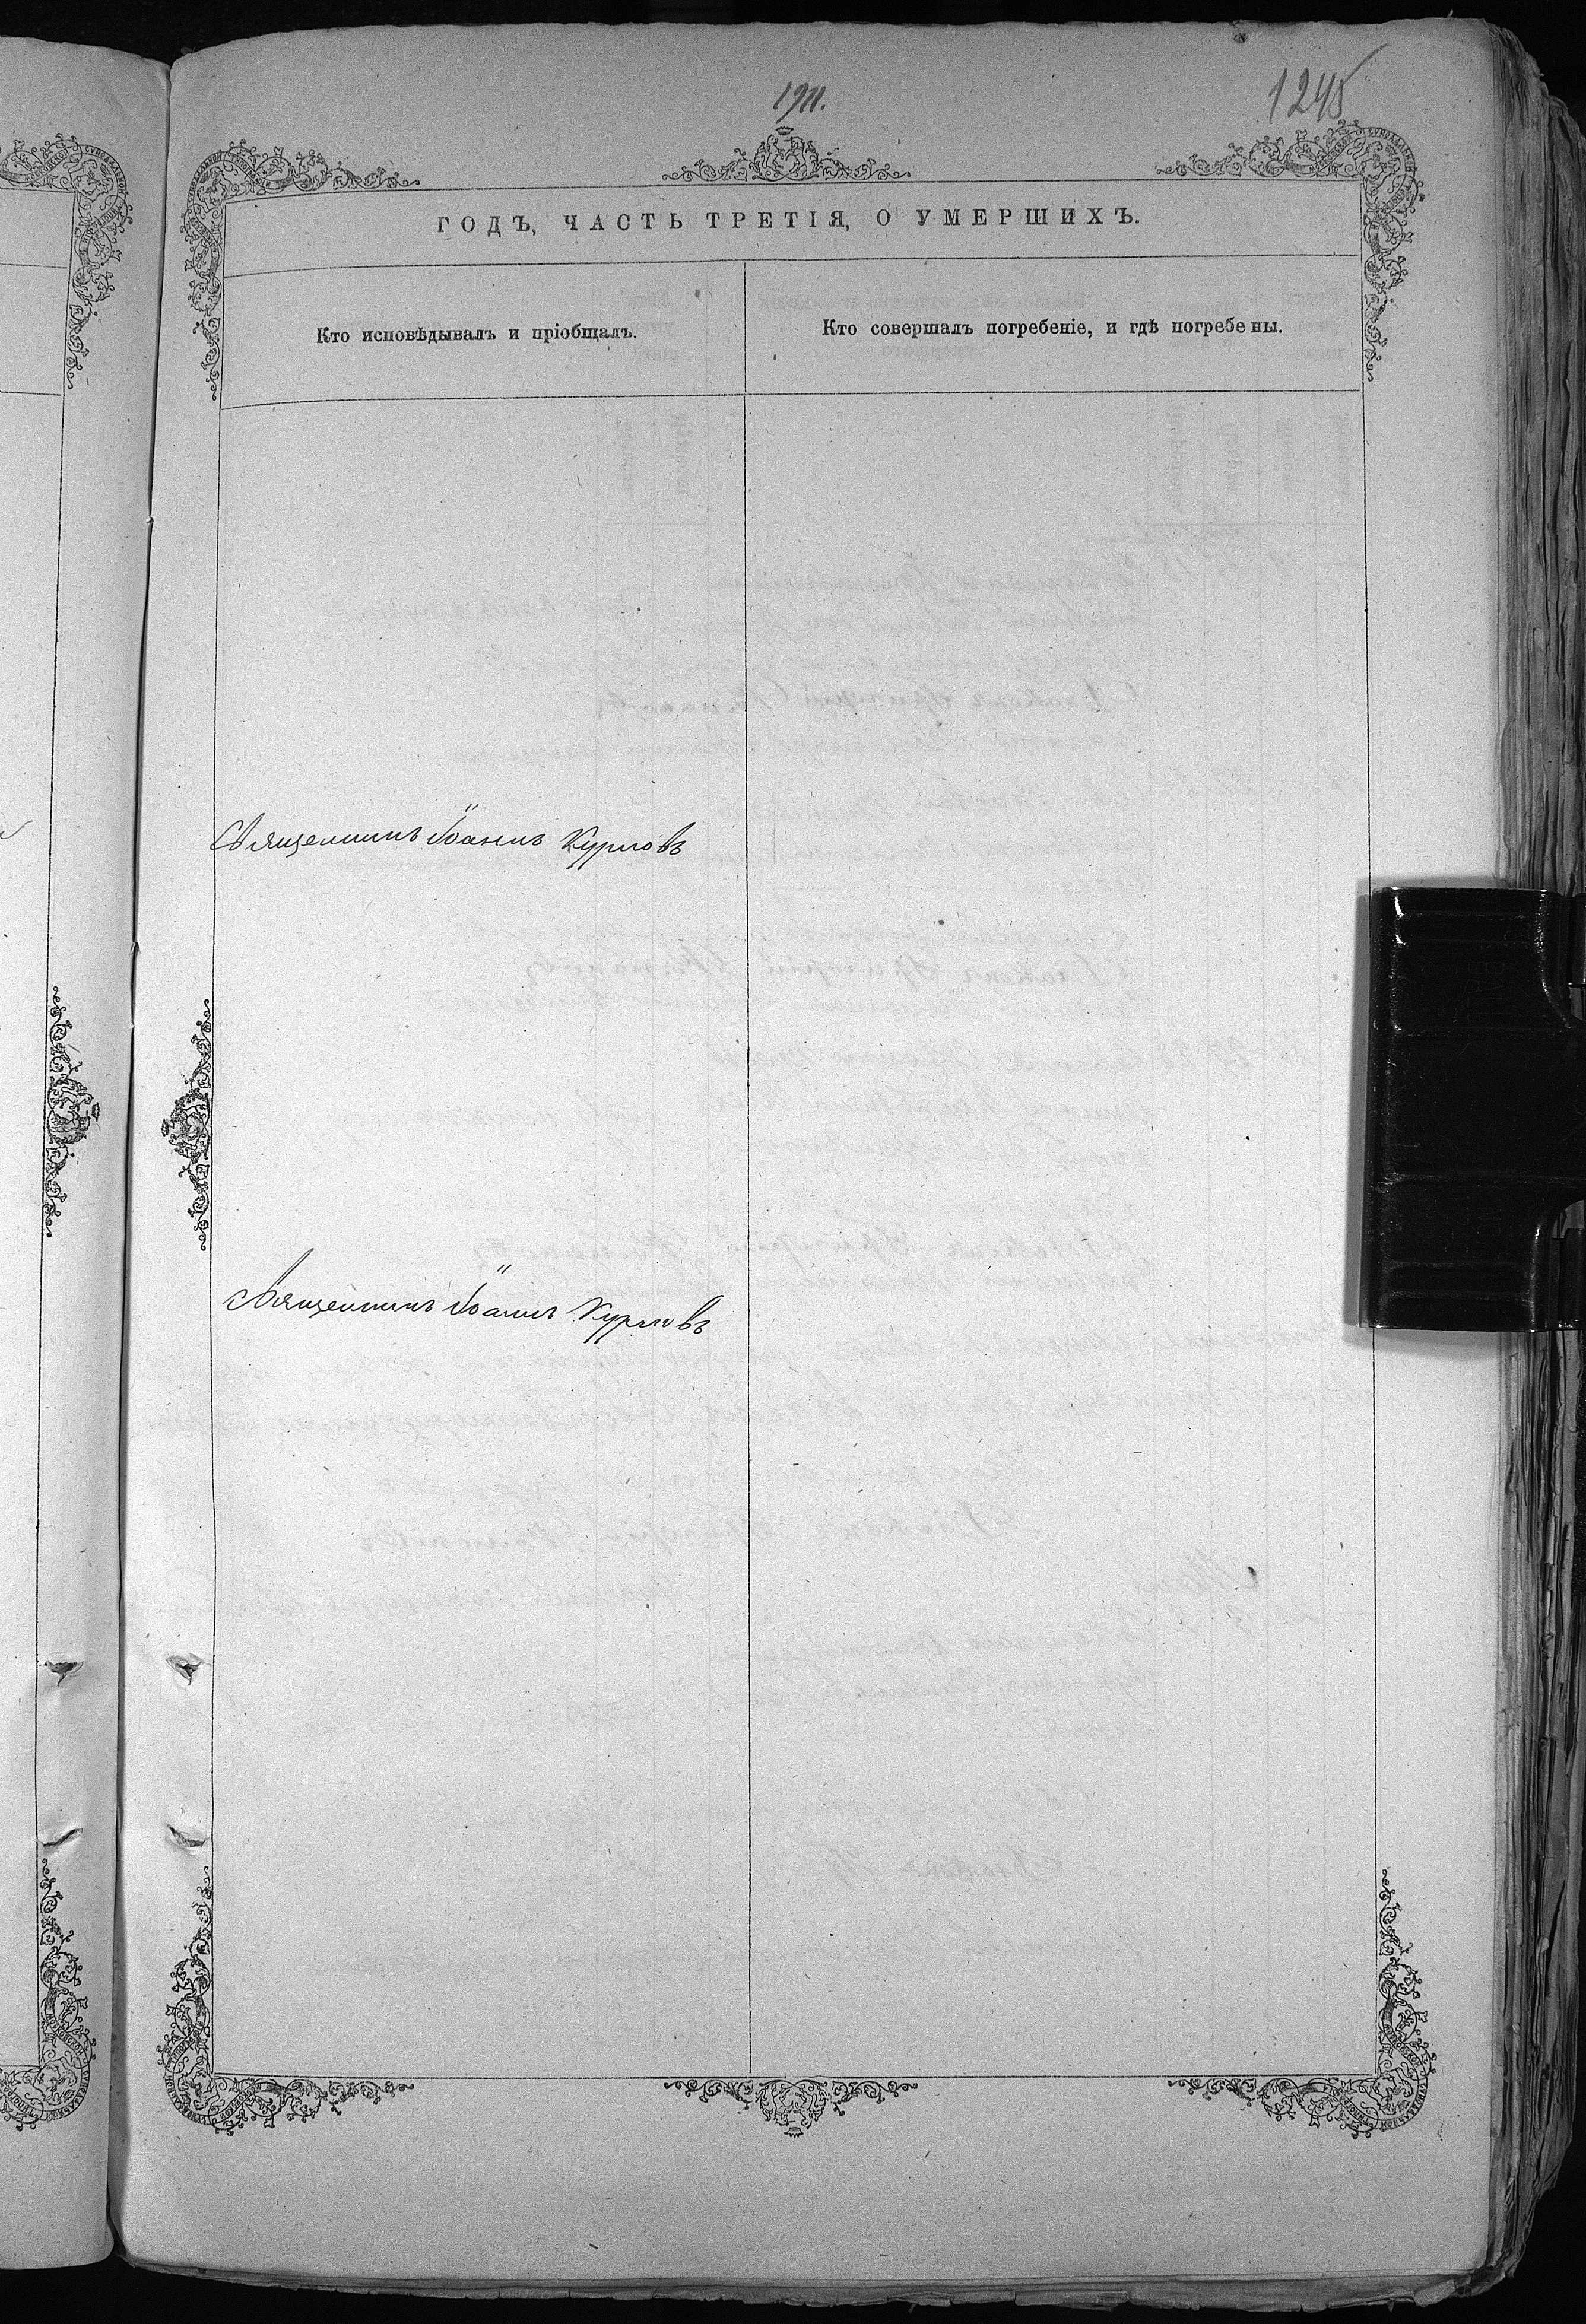 1911.
1245
ГОДЪ, ЧАСТЬ ТРЕТІЯ, О УМЕРШИХЪ.
Кто исповѣдывалъ и пріобщалъ.
Кто совершалъ погребеніе, и гдѣ погребены.
Священникъ Іоаннъ Курловъ
Священникъ Іоаннъ Курловъ